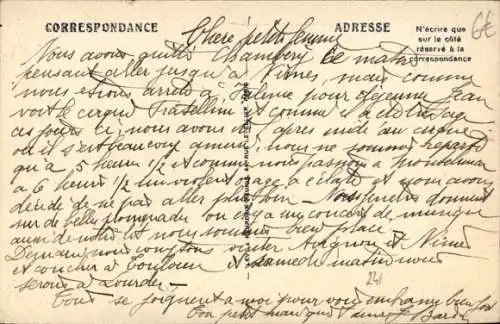 CORRESPONDANCE
ADRESSE
N'écrire que
sur le côté
réservé à la
correspondance
Chère petite femme
Nous avons quitté Chambéry ce matin
pensant aller jusqu'à Nimes, mais comme
nous étions arrêté à Valence pour déjeuner Jean
voit le cirque Fratellini et comme il a été très sage
ces jours ci, nous avons été l'après midi au cirque
où il s'est beaucoup amusé, nous ne sommes reparti
qu'à 5 heures 1/2 et comme nous passions à Montélimar
à 6 heures 1/2 un violent orage a éclaté et nous avons
décidé de ne pas aller plus loin. donnent
sur de belles promenades où il y a un concours de musique
aussi de notre nous sommes bien placé.
Demain nous comptons visiter Avignon et Nimes
et coucher à Toulouse et samedi matin nous
serons à Lourdes.
Tous se joignent à moi pour vous embrasser bien fort
Ton petit mari qui t'aime
241